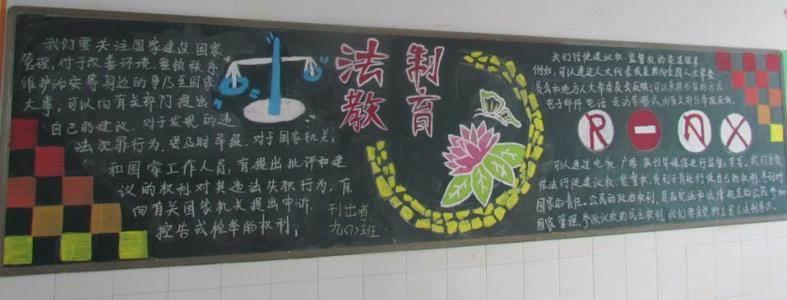 我们要关注国家建设国家
管理,对于改善环境、整顿秩序
维护治安等身边的事乃至国家
大事,可以向有关部门提出
自己的建议.对于发现的违
法犯罪行为,要及时举报.对于国家机关
和国家工作人员,有提出批评和建
议的权利对其违法失职行为,有
向有关国家机关提出申诉
控告或检举的权利.
刊出者
九(7)班
法制
教育
我们行使建议权、监督权的渠道很多
例如,可以通过人大代表或直接向全国人大常委
员会和地方人大常委会反映;可以采用书信的方式
电子邮件 电话 走访等形式,向有关部门举报反映.
R
可以通过电视、广播、报刊等媒体进行监督,
依法行使建议权、监督权,有利于
国家的责任.公民的政治权利,是由宪法和法律规定的公民参
国家管理、参政议政的民主权利,我们要